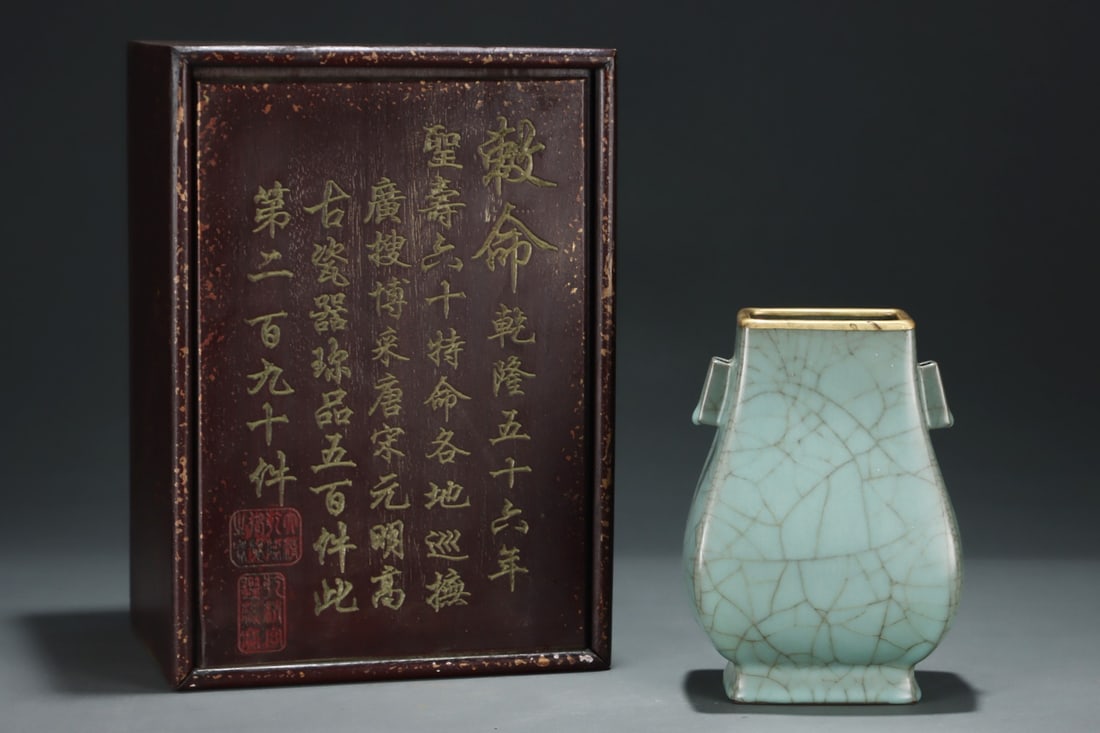 敕命乾隆五十六年
聖壽六十特命各地巡撫
廣搜博采唐宋元明高
古瓷器珎品五百件此
第二百九十件